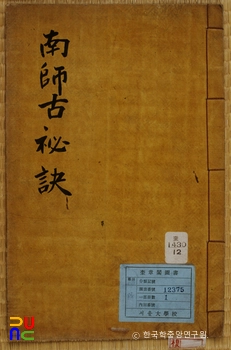 南師古祕訣
古
1430
12
奎章閣圖書
12375
1
서울大學校
ⓒ 한국학중앙연구원